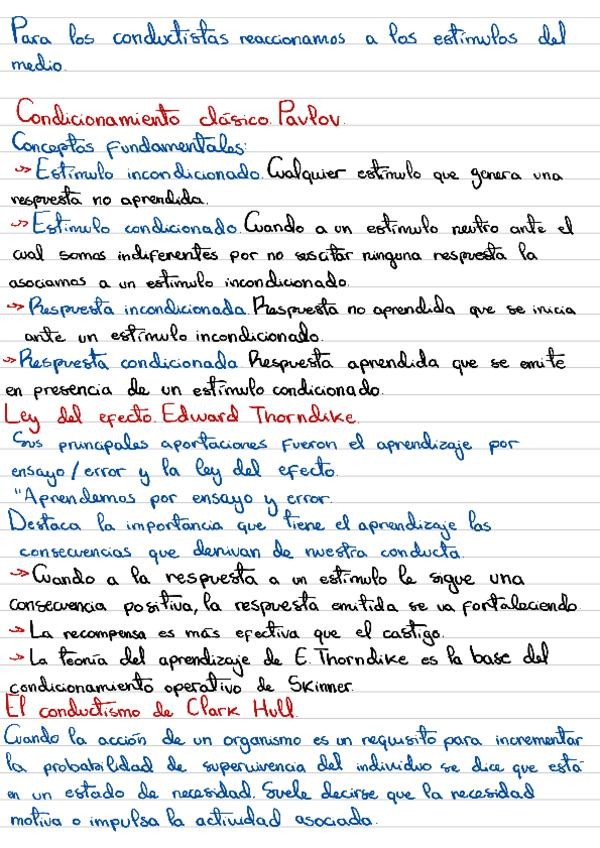 Para los conductistas reaccionamos a los estímulos del
medio.
Condicionamiento clásico. Pavlov.
Conceptos fundamentales:
→ Estímulo incondicionado. Cualquier estímulo que genera una
respuesta no aprendida.
→ Estímulo condicionado. Cuando a un estímulo neutro ante el
cual somos indiferentes por no suscitar ninguna respuesta la
asociamos a un estímulo incondicionado.
→ Respuesta incondicionada. Respuesta no aprendida que se inicia
ante un estímulo incondicionado.
→ Respuesta condicionada Respuesta aprendida que se emite
en presencia de un estímulo condicionado.
Ley del efecto. Edward Thorndike.
Sus principales aportaciones fueron el aprendizaje por
ensayo/error y la ley del efecto.
"Aprendemos por ensayo y error.
Destaca la importancia que tiene el aprendizaje las
consecuencias que derivan de nuestra conducta.
→ Cuando a la respuesta a un estímulo le sigue una
consecuencia positiva, la respuesta emitida se va fortaleciendo
→ La recompensa es más efectiva que el castigo.
→ La teoría del aprendizaje de E. Thorndike es la base del
condicionamiento operativo de Skinner.
El conductismo de Clark Hull.
Cuando la acción de un organismo es un requisito para incrementar
la probabilidad de supervivencia del individuo se dice que está
en un estado de necesidad. Suele decirse que la necesidad
motiva o impulsa la actividad asociada.